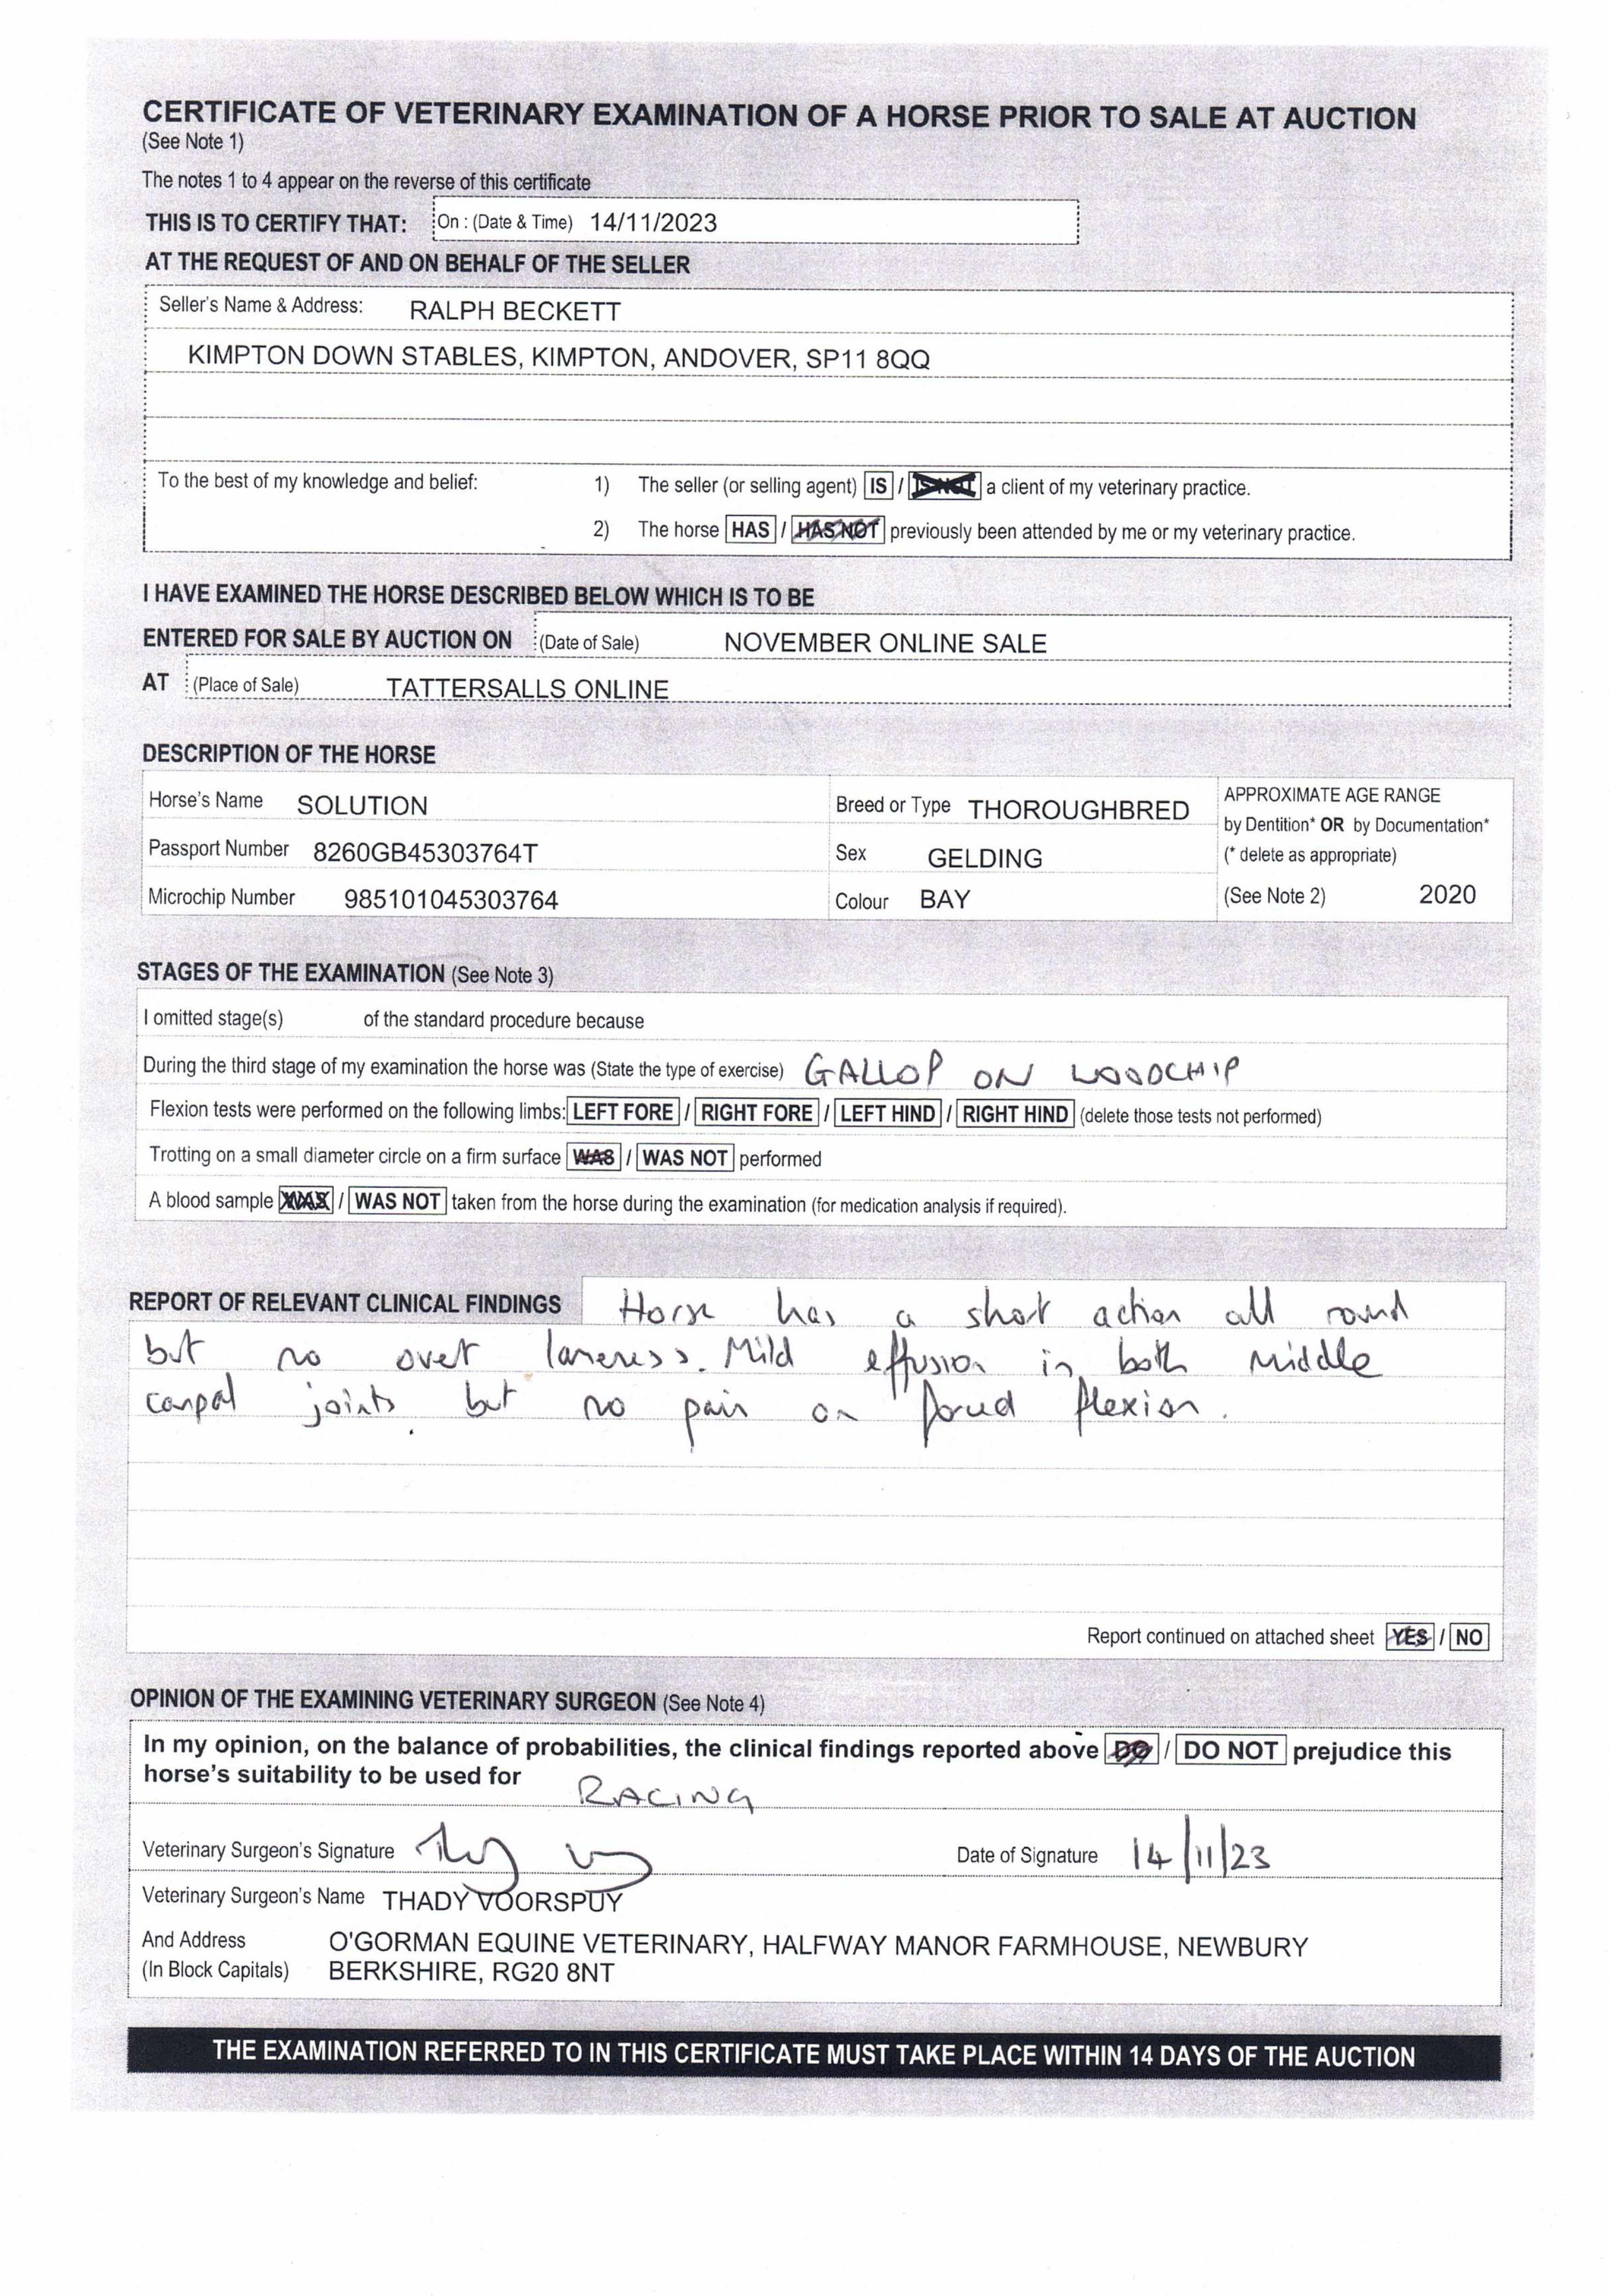 CERTIFICATE OF VETERINARY EXAMINATION OF A HORSE PRIOR TO SALE AT AUCTION
(See Note 1)
The notes 1 to 4 appear on the reverse of this certificate
THIS IS TO CERTIFY THAT: On : (Date & Time) 14/11/2023
AT THE REQUEST OF AND ON BEHALF OF THE SELLER
Seller's Name & Address: RALPH BECKETT
KIMPTON DOWN STABLES, KIMPTON, ANDOVER, SP11 8QQ
To the best of my knowledge and belief: 1) The seller (or selling agent) IS / IS NOT a client of my veterinary practice.
2) The horse HAS / HAS NOT previously been attended by me or my veterinary practice.
I HAVE EXAMINED THE HORSE DESCRIBED BELOW WHICH IS TO BE
ENTERED FOR SALE BY AUCTION ON (Date of Sale) NOVEMBER ONLINE SALE
AT (Place of Sale) TATTERSALLS ONLINE
DESCRIPTION OF THE HORSE
Horse's Name SOLUTION Breed or Type THOROUGHBRED APPROXIMATE AGE RANGE
by Dentition* OR by Documentation*
Passport Number 8260GB45303764T Sex GELDING (* delete as appropriate)
Microchip Number 985101045303764 Colour BAY (See Note 2) 2020
STAGES OF THE EXAMINATION (See Note 3)
I omitted stage(s) of the standard procedure because
During the third stage of my examination the horse was (State the type of exercise) GALLOP ON WOODCHIP
Flexion tests were performed on the following limbs: LEFT FORE / RIGHT FORE / LEFT HIND / RIGHT HIND (delete those tests not performed)
Trotting on a small diameter circle on a firm surface WAS / WAS NOT performed
A blood sample WAS / WAS NOT taken from the horse during the examination (for medication analysis if required).
REPORT OF RELEVANT CLINICAL FINDINGS Horse has a short action all round
but no overt lameness. Mild effusion in both middle
carpal joints. but no pain on forced flexion.
Report continued on attached sheet YES / NO
OPINION OF THE EXAMINING VETERINARY SURGEON (See Note 4)
In my opinion, on the balance of probabilities, the clinical findings reported above DO / DO NOT prejudice this
horse's suitability to be used for RACING
Veterinary Surgeon's Signature Date of Signature 14/11/23
Veterinary Surgeon's Name THADY VOORSPUY
And Address O'GORMAN EQUINE VETERINARY, HALFWAY MANOR FARMHOUSE, NEWBURY
(In Block Capitals) BERKSHIRE, RG20 8NT
THE EXAMINATION REFERRED TO IN THIS CERTIFICATE MUST TAKE PLACE WITHIN 14 DAYS OF THE AUCTION